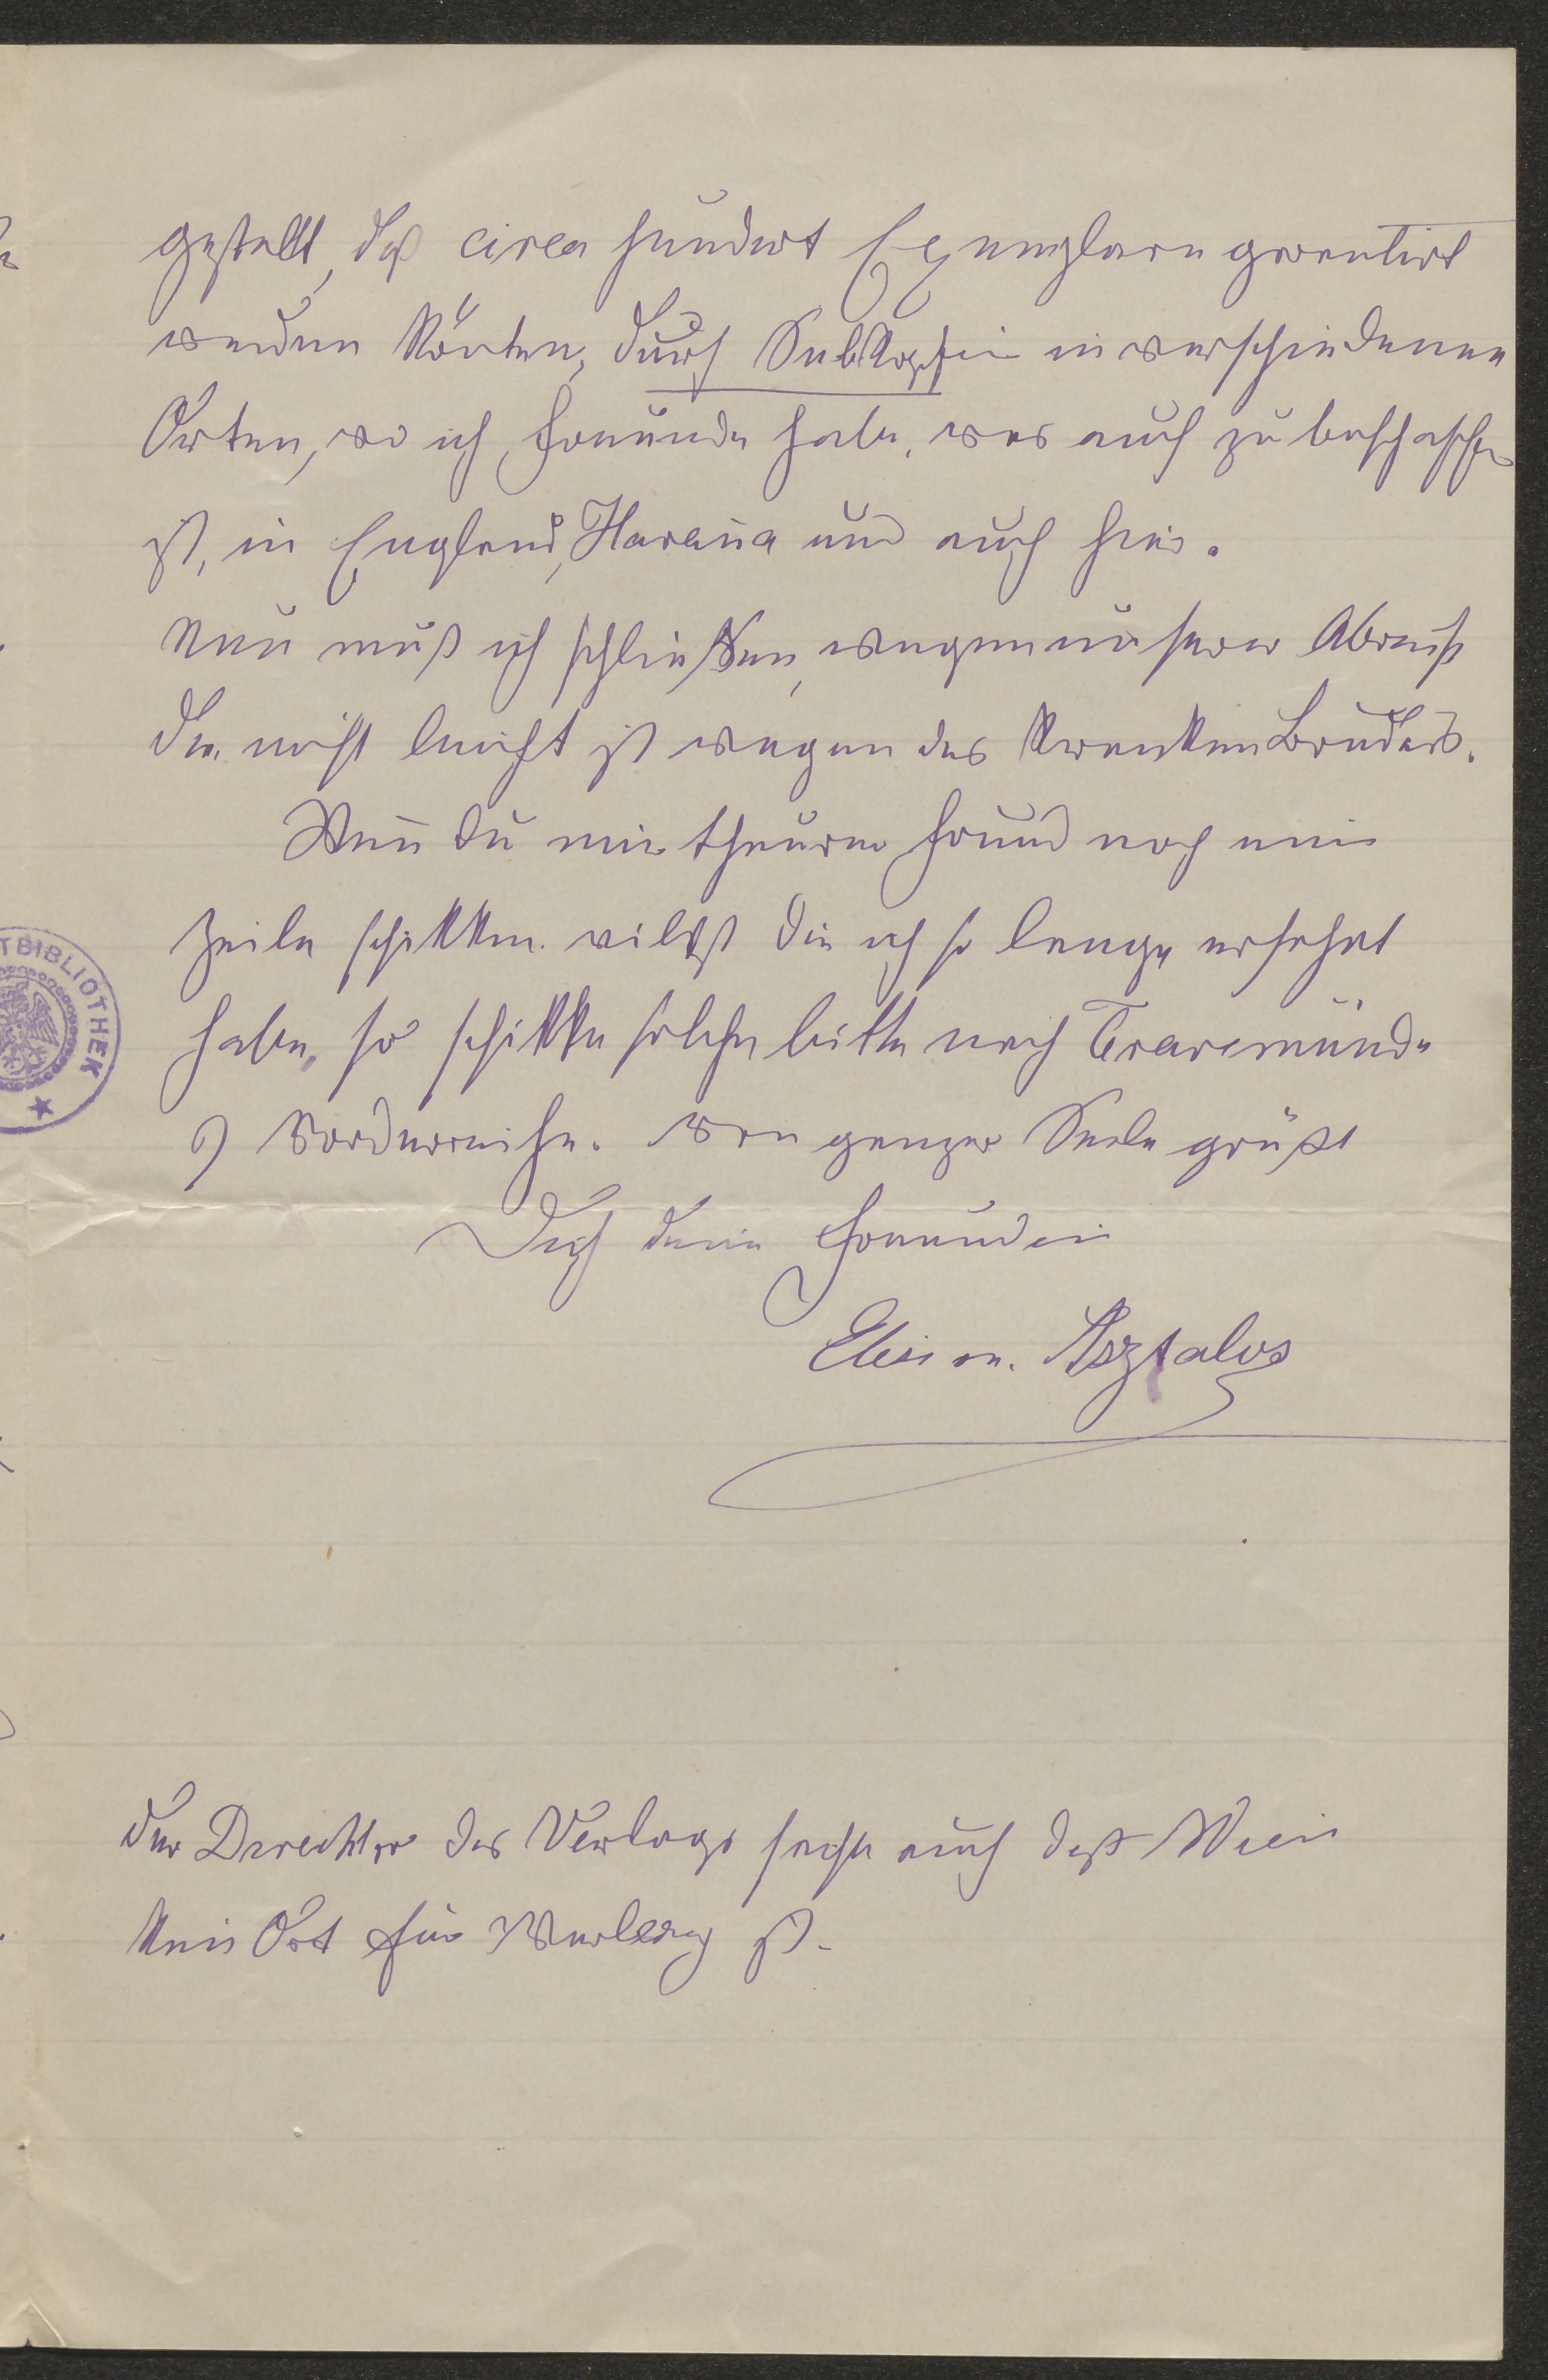 gestellt, daß circa hundert Exemplare garentirt
werden könten, durch Subkopzin in verschiedenen
Orten, wo ich Freunde habe, was auch zu beschaffen
ist, in England, Havana und auch hier.
Nun muß ich schließen, wegen unserer Abreise
die nicht leicht ist wegen des kranken Bruders.
Wenn du mir theurer Freund noch eine
Zeile schikken willst die ich so lange ersehnt
habe, so schikke solche bitte nach Travemünde
9 Vorderreihe. Von ganzer Seele grüßt
Dich deine Freundin
Elise v. Asztalos
TBIBLIOTHEK
der Direchtor des Verlags sagte auch daß Wien
kein Ort für Verlag ist.